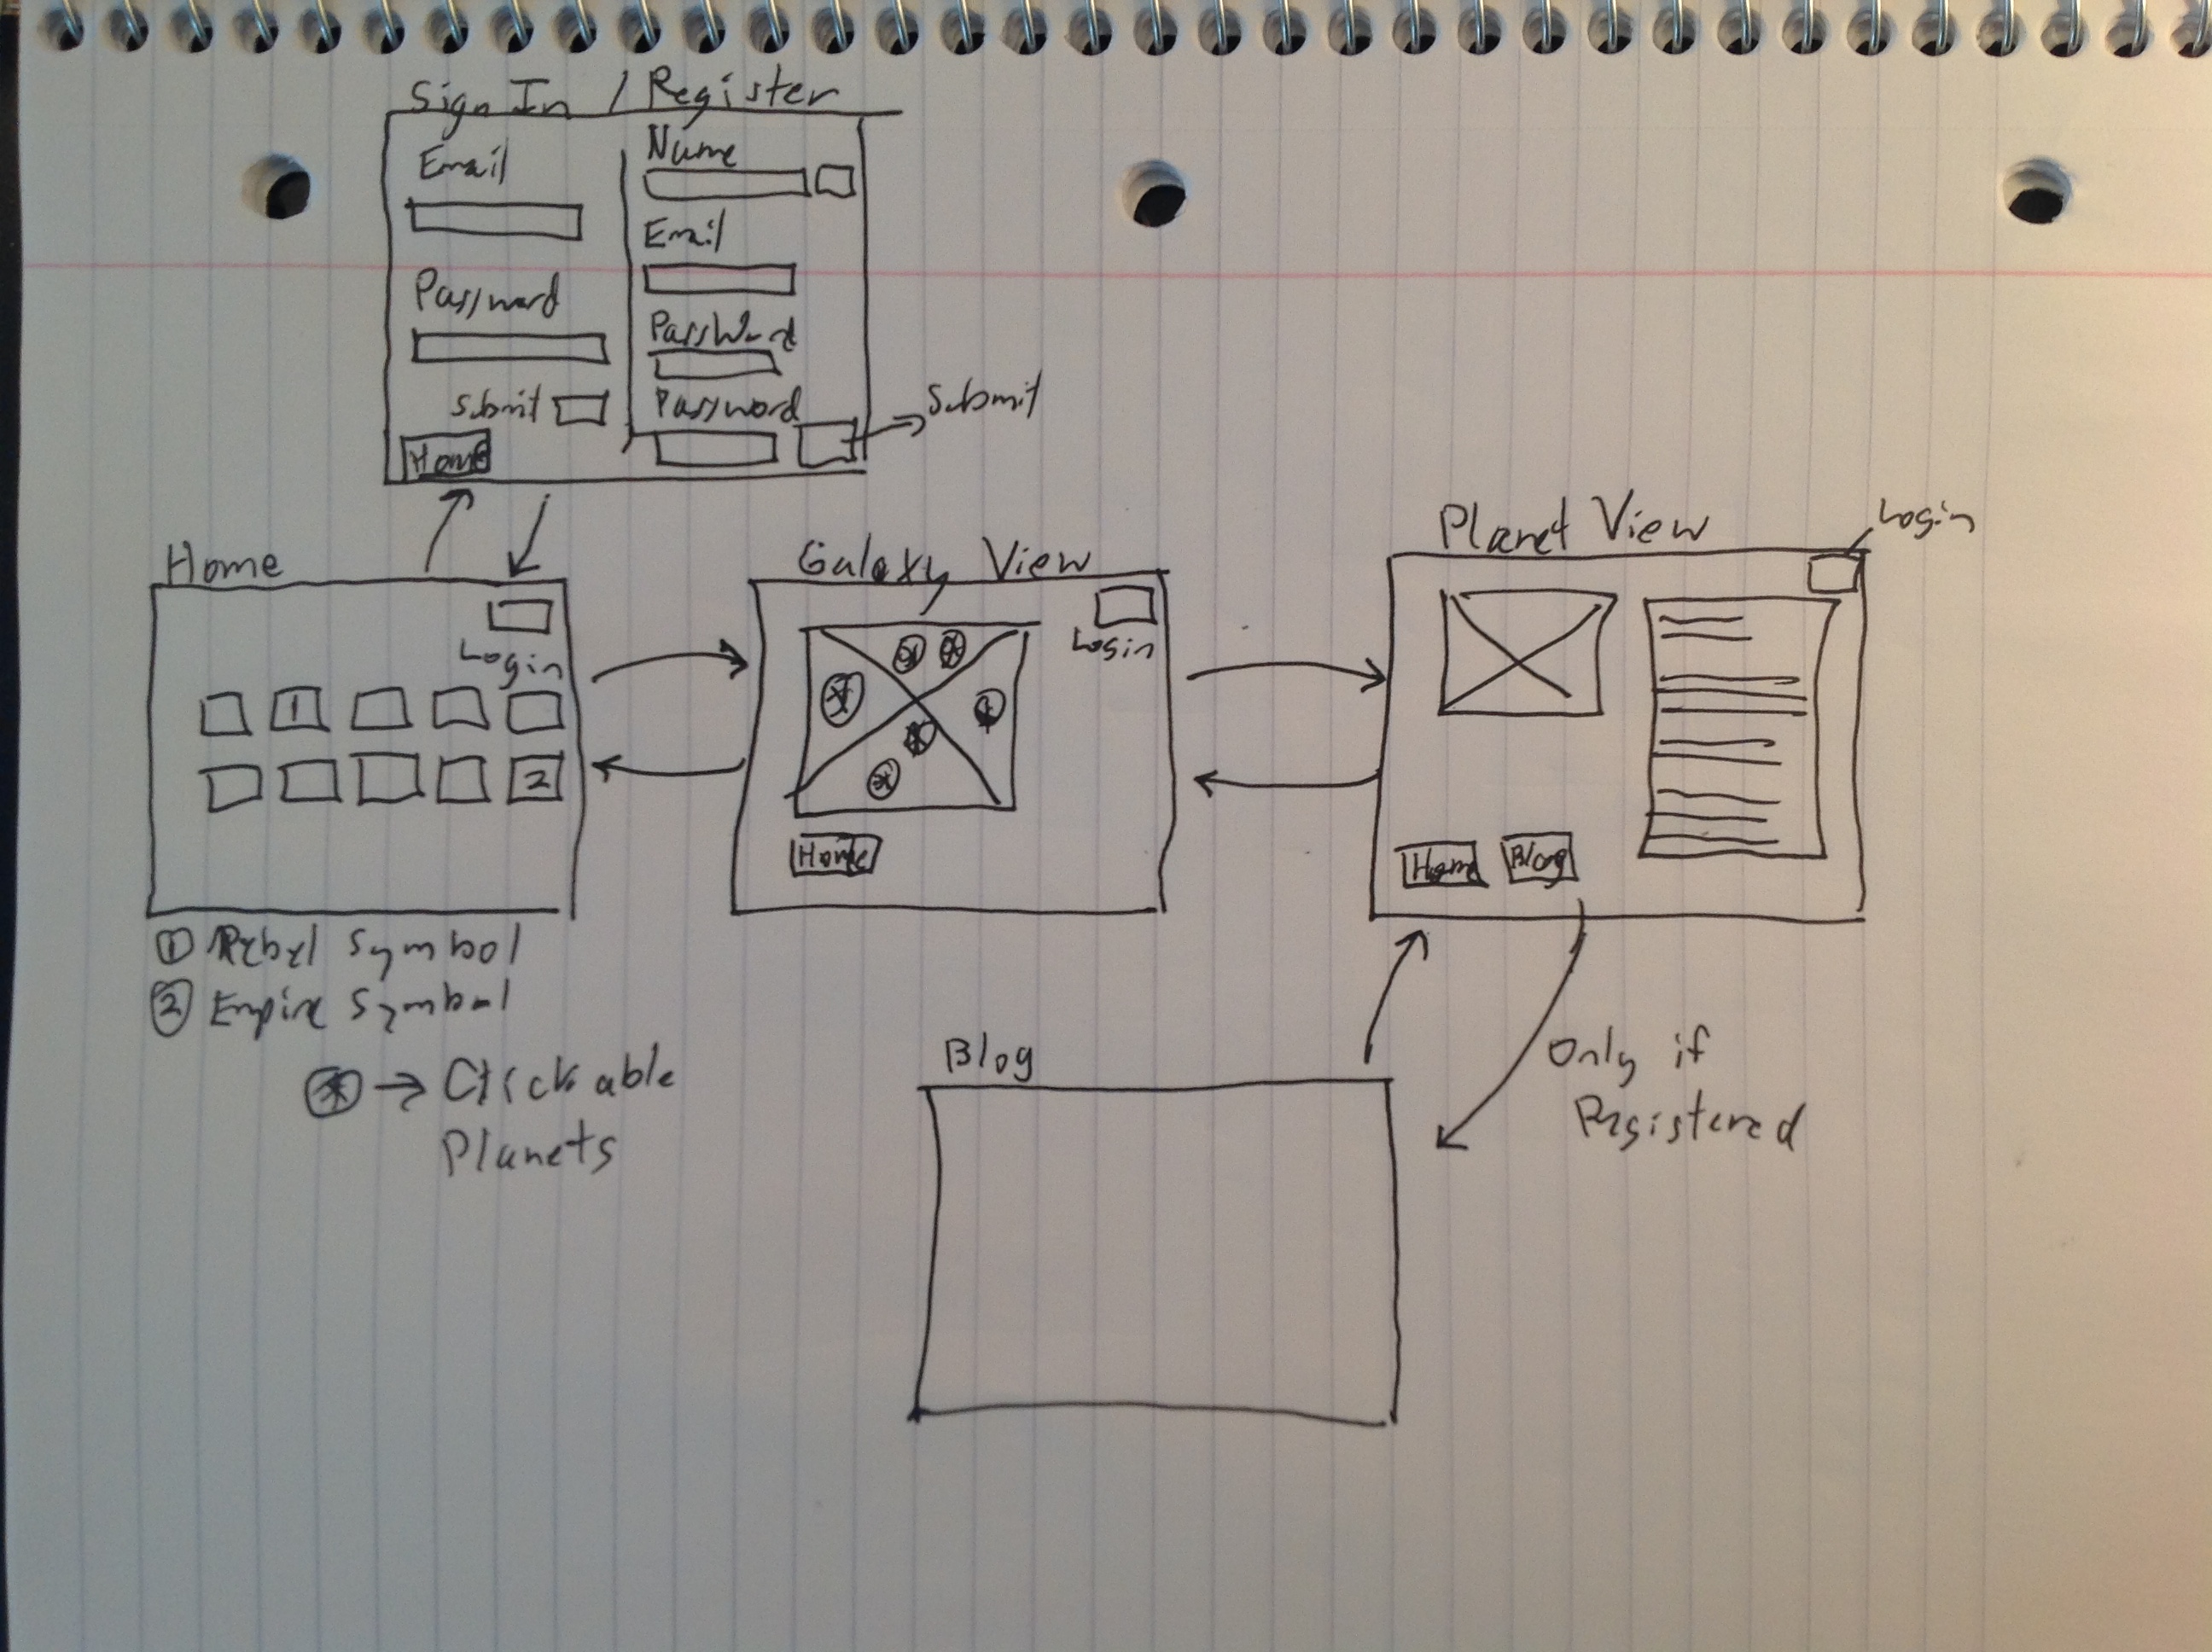 Sign In / Register
Email
Password
Submit
Home
Name
Email
Password
Password
Submit
Home
Login
1
2
① Rebel Symbol
② Empire Symbol
→ Clickable
Planets
Galaxy View
Login
Home
Planet View
Login
Home
Blog
Only if
Registered
Blog